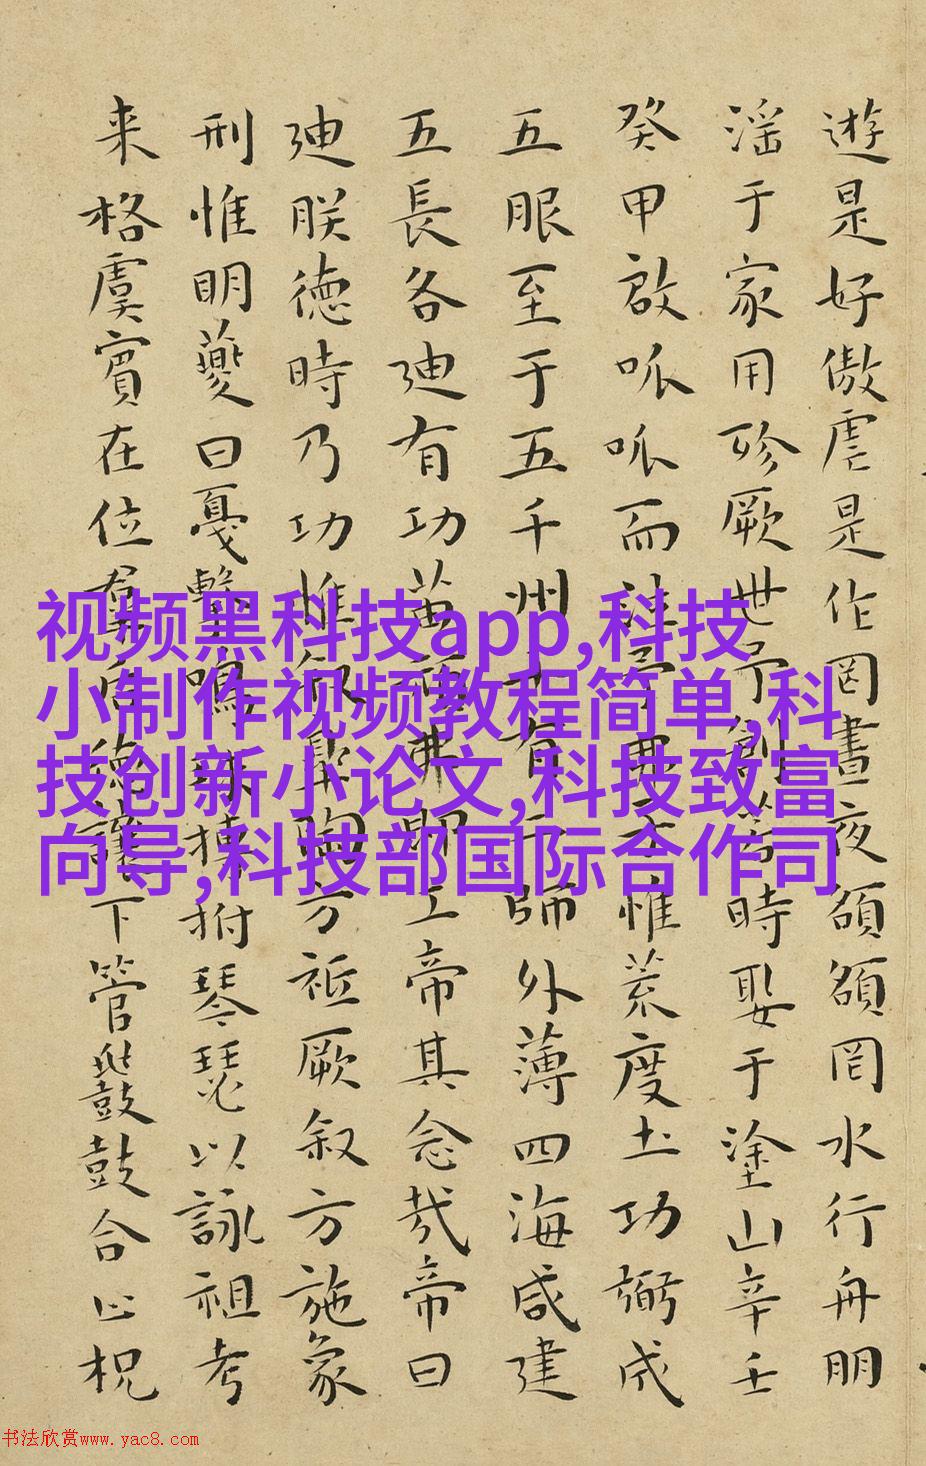 遊是好傲虐是作罔晝夜頟頟罔水行舟朋
淫于家用殄厥世予創若時娶于塗山辛壬
癸甲啟呱呱而泣予弗子惟荒度土功弼成
五服至于五千州十有二師外薄四海咸建
五長各廸有功苗頑弗即工帝其念哉帝曰
廸朕德時乃功惟叙皋陶方祗厥叙方施象
刑惟明夔曰戛擊鳴球搏拊琴瑟以詠祖考
来格虞賓在位羣后德讓下管鼗鼓合止柷
视频黑科技app,科技
小制作视频教程简单,科
技创新小论文,科技致富
向导,科技部国际合作司
书法欣赏www.yac8.com